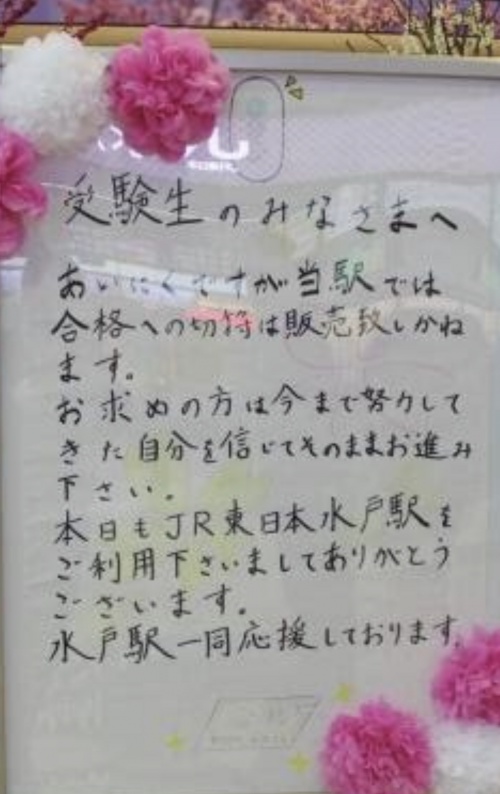 受験生のみなさまへ
あいにくですが当駅では
合格への切符は販売致しかね
ます。
お求めの方は今まで努力して
きた自分を信じてそのままお進み
下さい。
本日もJR東日本水戸駅を
ご利用下さいましてありがとう
ございます。
水戸駅一同応援しております。